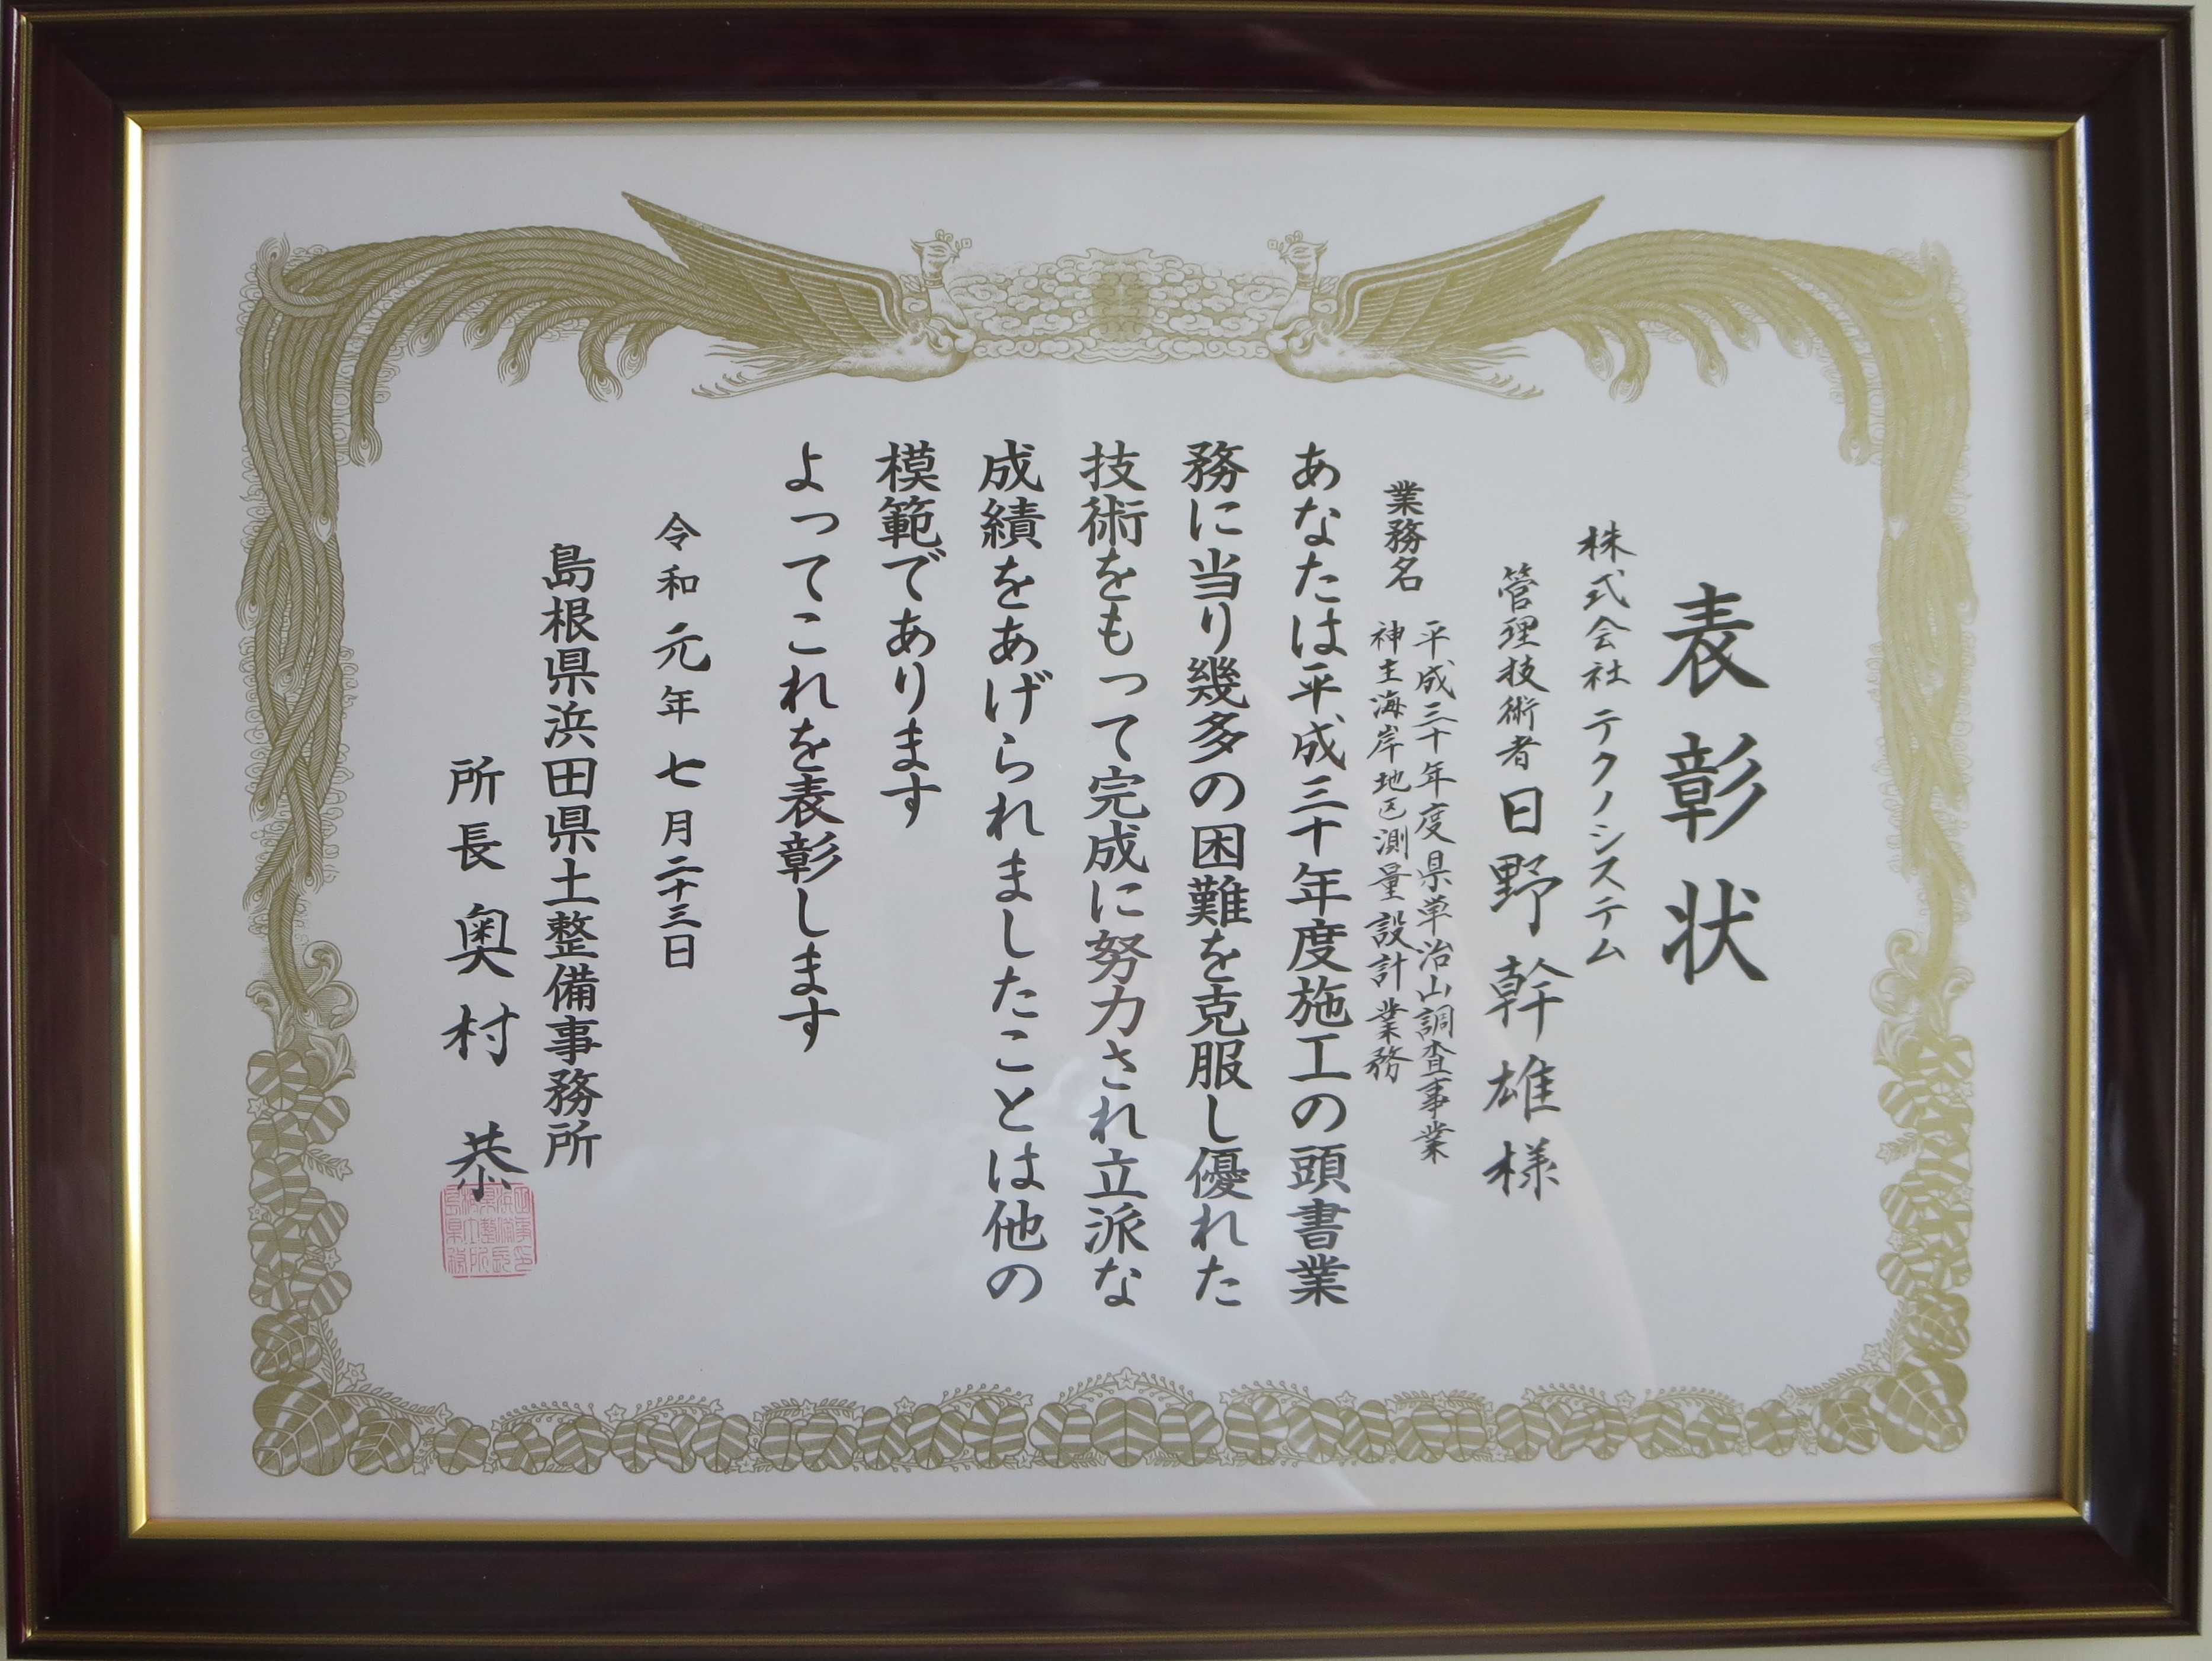 表彰状
株式会社 テクノシステム
管理技術者 日野 幹雄 様
業務名 平成三十年度県単治山調査事業
神主海岸地区測量設計業務
あなたは平成三十年度施工の頭書業
務に当り幾多の困難を克服し優れた
技術をもって完成に努力され立派な
成績をあげられましたことは他の
模範であります
よってこれを表彰します
令和元年七月二十三日
島根県浜田県土整備事務所
所長 奥村 恭